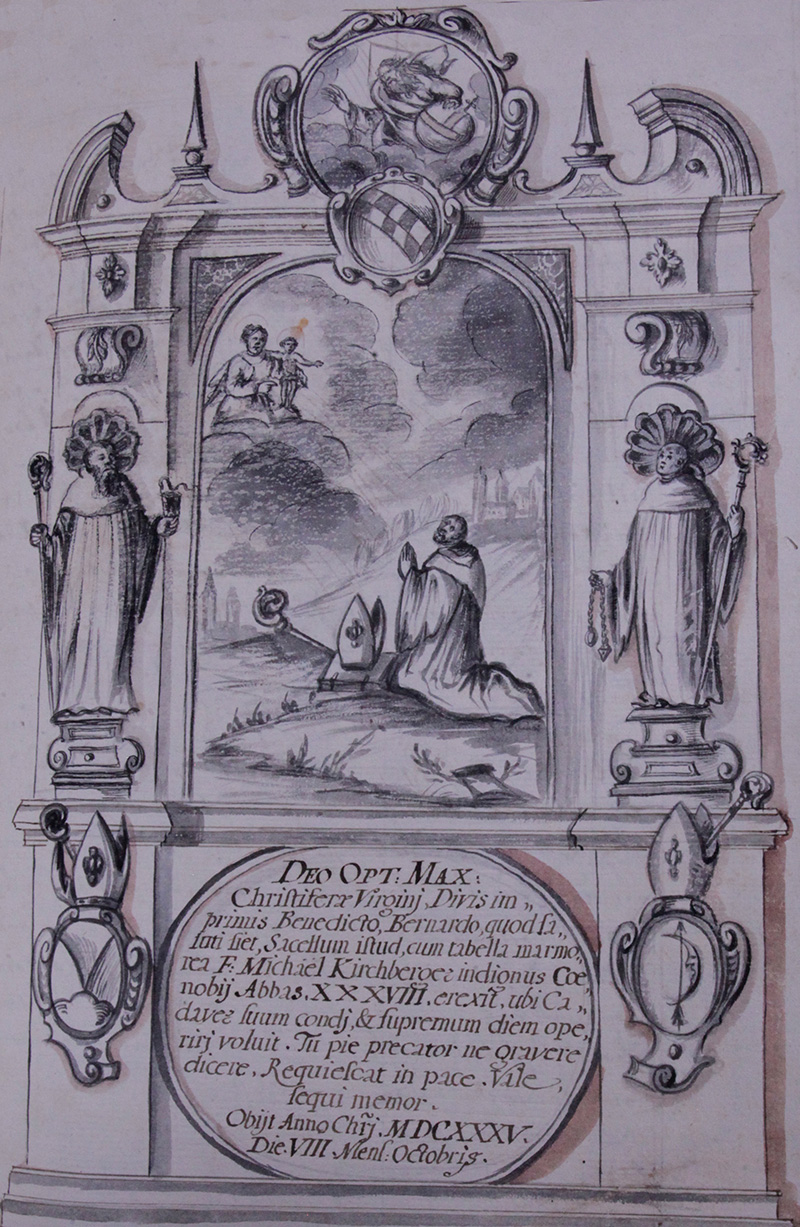 DEO OPT: MAX:
Christiferæ Virginj, Divis im„
primis Benedicto, Bernardo, quod sa„
luti siet, Sacellum istud, cum tabella marmo„
rea F: Michäel Kirchberger indignus Coe„
nobij Abbas. XXXVIII. erexit, ubi Ca„
daver suum condj, & supremum diem ope„
rirj voluit. Tu pie precator ne gravere
dicere, Requiescat in pace. Vale,
sequi memor.
Obijt Anno Chrj. MDCXXXV.
Die. VIII. Mens: Octobris.